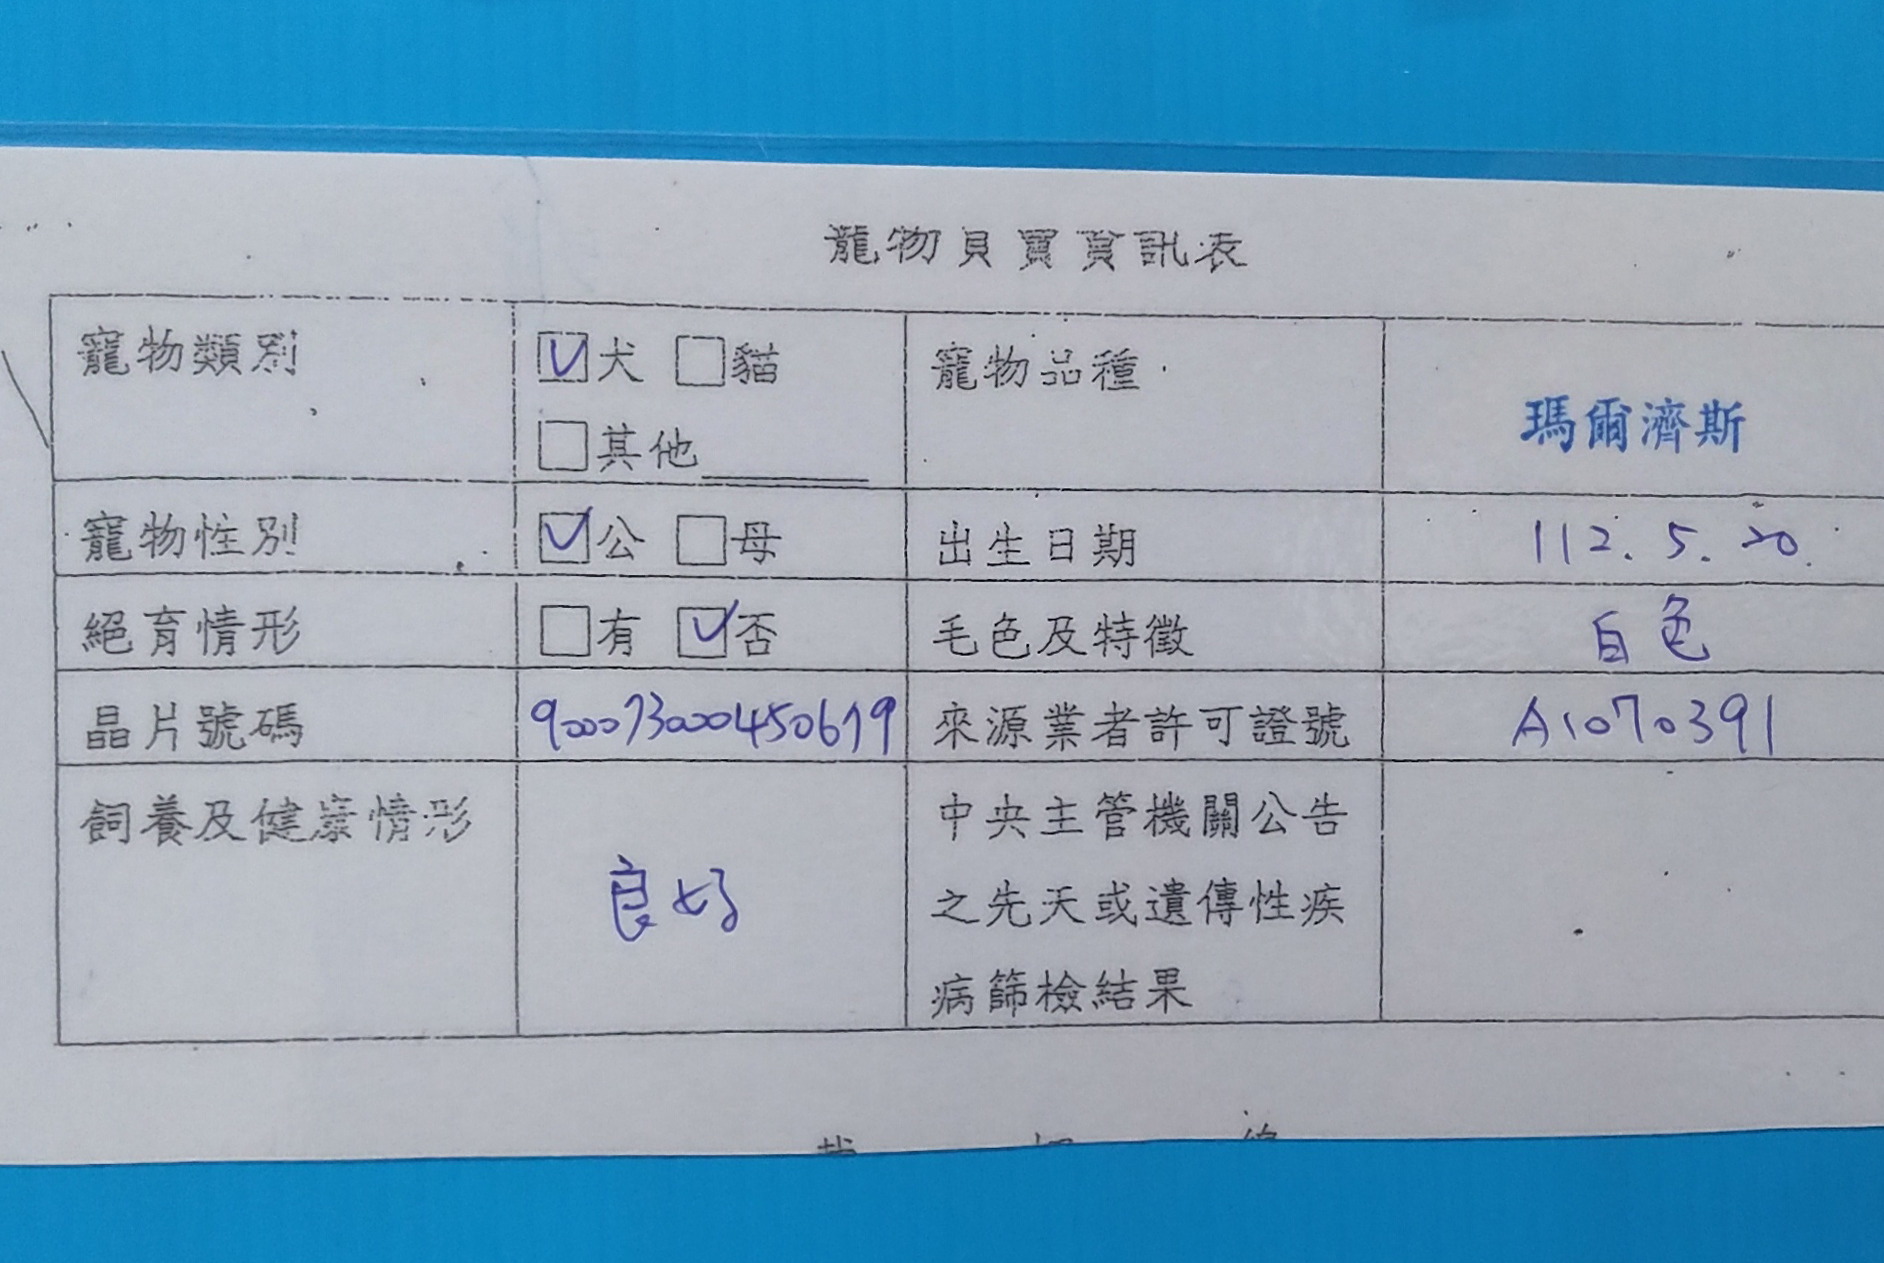 寵物買賣資訊表
寵物類別 ☑犬 ☐貓 寵物品種 瑪爾濟斯
☐其他
寵物性別 ☑公 ☐母 出生日期 112.5.20.
絕育情形 ☐有 ☑否 毛色及特徵 白色
晶片號碼 900073000450619 來源業者許可證號 A1070391
飼養及健康情形 良好 中央主管機關公告
之先天或遺傳性疾
病篩檢結果